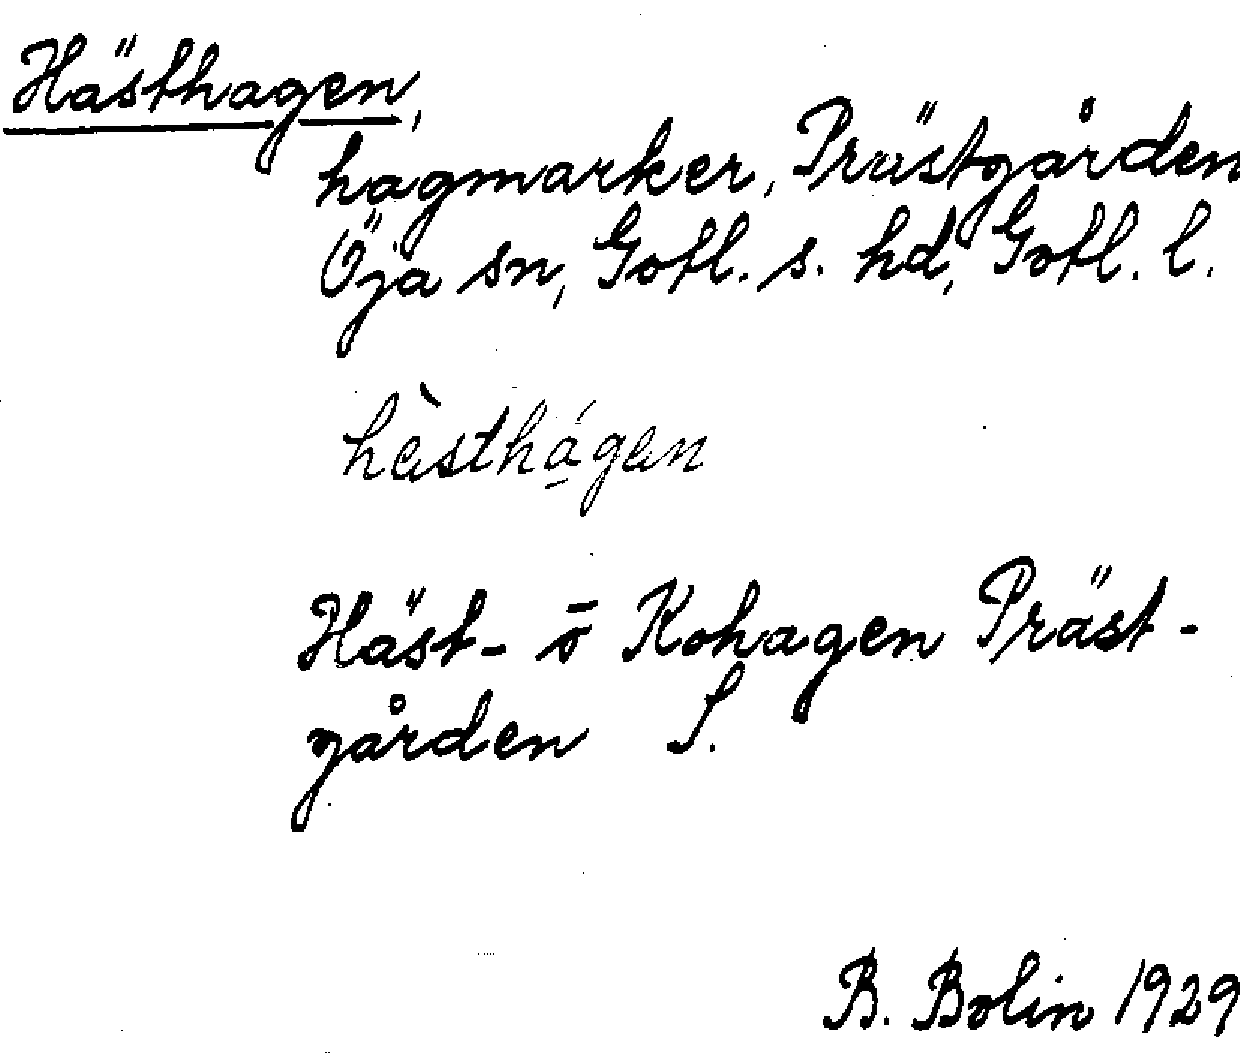 Hästhagen,
hagmarker, Prästgården
Öja sn, Gotl. s. hd, Gotl. l.
hàsthá̱gan
Häst- o̅ Kohagen Präst-
gården S.
B. Bolin 1929